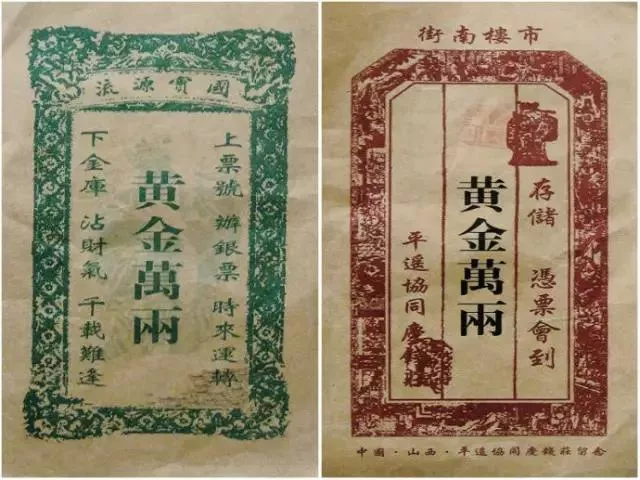 國寶源流
上票號 辦銀票 時來運轉
黄金萬兩
下金庫 沾財氣 千載難逢
市樓南街
存儲 憑票會到
黄金萬兩
平遥協同慶錢莊
中國·山西·平遥協同慶錢莊留念